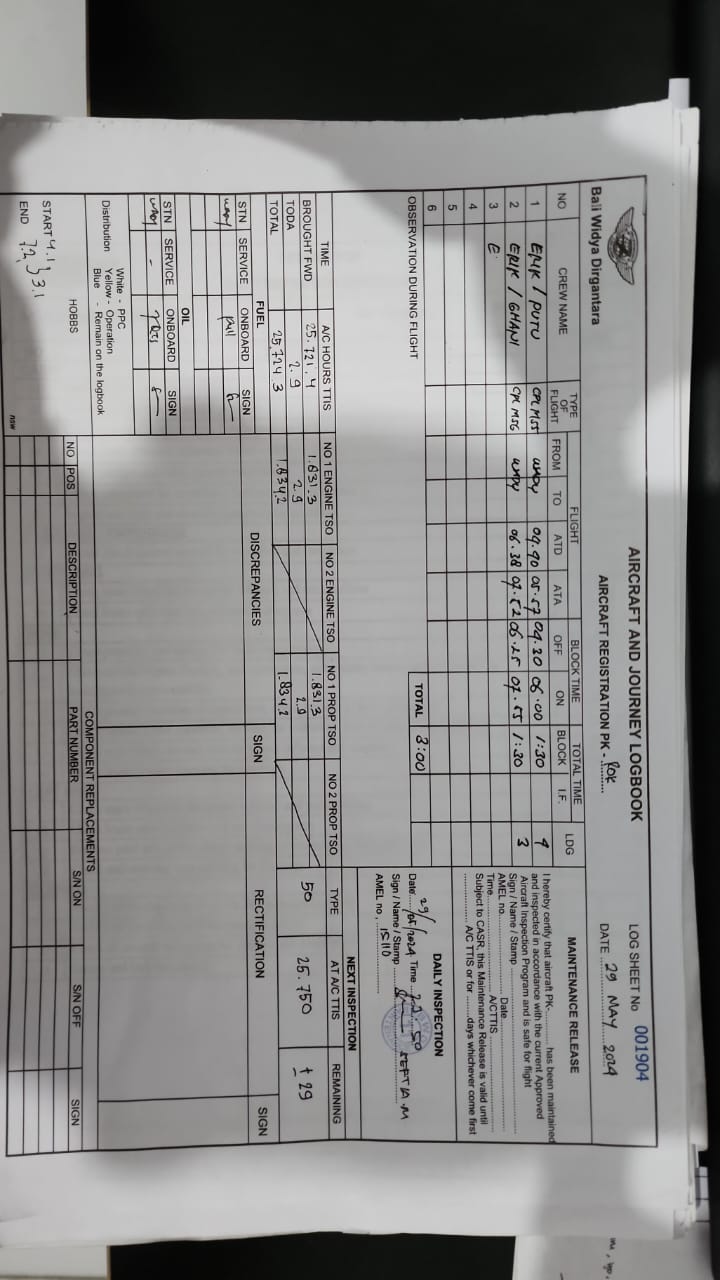 Bali Widya Dirgantara
AIRCRAFT AND JOURNEY LOGBOOK
AIRCRAFT REGISTRATION PK - ROK
LOG SHEET No 001904
DATE 29 MAY 2024
NO CREW NAME TYPE OF FLIGHT FLIGHT BLOCK TIME TOTAL TIME LDG
FROM TO ATD ATA OFF ON BLOCK I.F.
1 ERIK / PUTU CPL MS5 WADY 04.40 05.57 04.30 06.00 1:30 9
2 ERIK / GHANI CPL MSG WADY 06.38 07.52 06.25 07.55 1:30 3
3 E
4
5
6
TOTAL 3:00
OBSERVATION DURING FLIGHT
MAINTENANCE RELEASE
I hereby certify that aircraft PK- has been maintained
and inspected in accordance with the current Approved
Aircraft Inspection Program and is safe for flight
Sign / Name / Stamp
AMEL no. Date
Time A/CTTIS
Subject to CASR, this Maintenance Release is valid until
A/C TTIS or for days whichever come first
DAILY INSPECTION
Date 29/05/2024 Time 22.50
Sign / Name / Stamp SEPTIA.M
AMEL no. 15110
TIME A/C HOURS TTIS NO 1 ENGINE TSO NO 2 ENGINE TSO NO 1 PROP TSO NO 2 PROP TSO
BROUGHT FWD 25.721.4 1.831.3 1.831.3
TODA 2.9 2.9 2.9
TOTAL 25.724.3 1.834.2 1.834.2
NEXT INSPECTION
TYPE AT A/C TTIS REMAINING
50 25.750 ± 29
FUEL
STN SERVICE ONBOARD SIGN
WADY full
OIL
STN SERVICE ONBOARD SIGN
WADY - 7 qts
DISCREPANCIES SIGN RECTIFICATION SIGN
Distribution White - PPC
Yellow - Operation
Blue - Remain on the logbook
HOBBS
START 4.1 } 3.1
END 7.2
COMPONENT REPLACEMENTS
NO POS DESCRIPTION PART NUMBER S/N ON S/N OFF SIGN
nsw